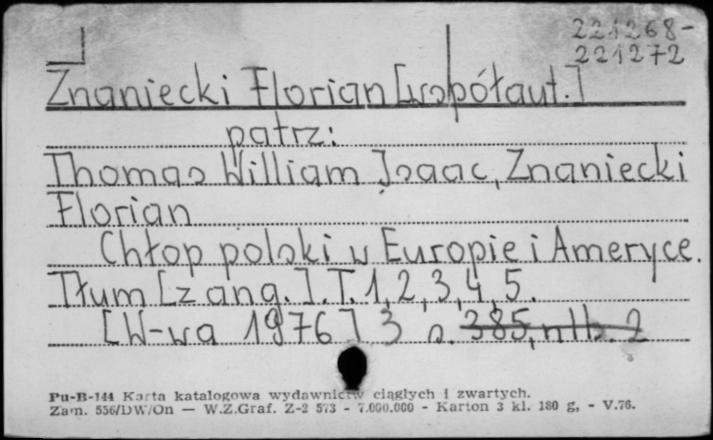 221268-
221272
Znaniecki Florian [współaut.]
patrz:
Thomas William Isaac, Znaniecki
Florian
Chłop polski w Europie i Ameryce.
Tłum [z ang.]. T. 1, 2, 3, 4, 5.
[W-wa 1976] 3 s. 385, nlb. 2
Pu-B-144 Karta katalogowa wydawnictw ciągłych i zwartych.
Zam. 556/DW/On — W.Z.Graf. Z-2 573 - 7.000.000 - Karton 3 kl. 180 g, - V.76.